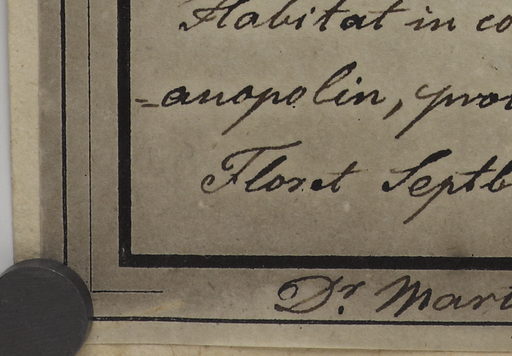 Habitat in co
=anopolin, prov
Floret Septb
Dr. Marti